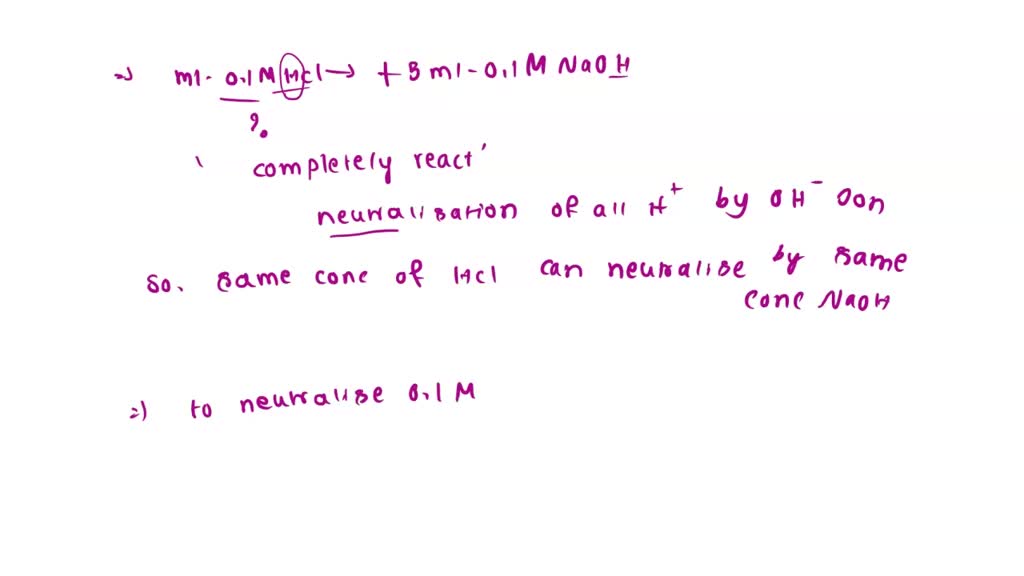 =) ml - 0.1 M HCl → + 3 ml - 0.1 M NaOH
?
' completely react '
neutralisation of all H⁺ by OH⁻ Oon
So. same conc of HCl can neutralise by same
conc NaOH
=) to neutralise 0.1 M